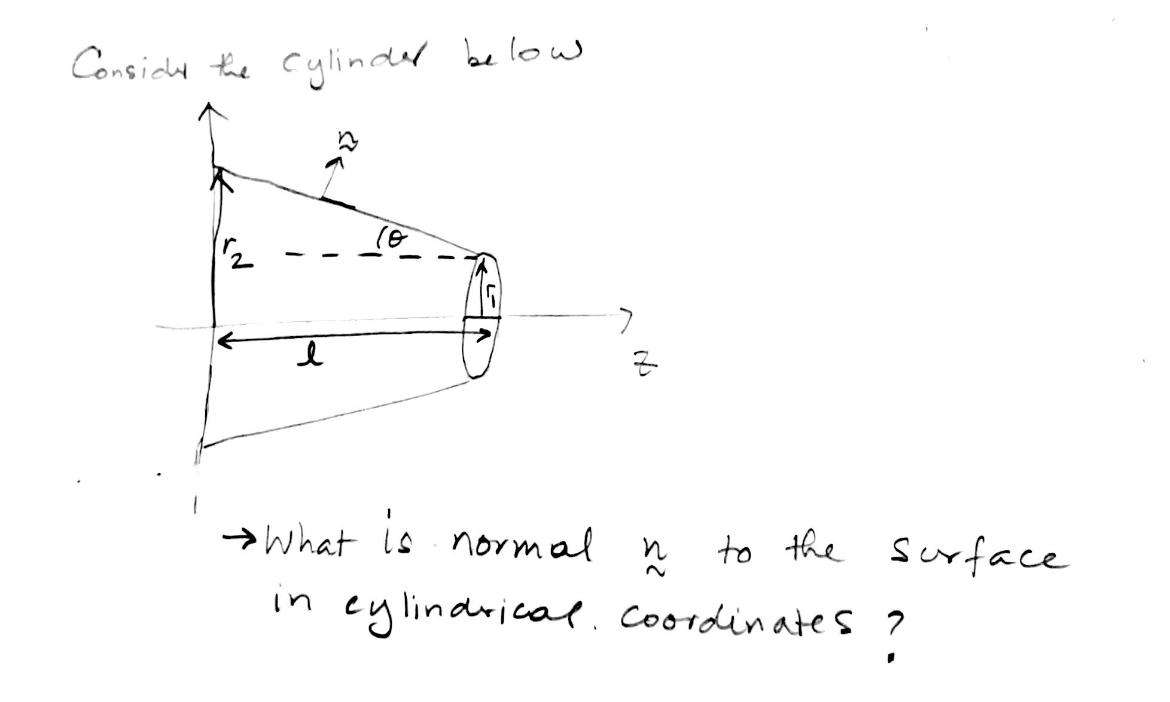 Consider the cylinder below
n
θ
r2
r1
l
z
→What is normal n to the surface
in cylindrical. coordinates ?